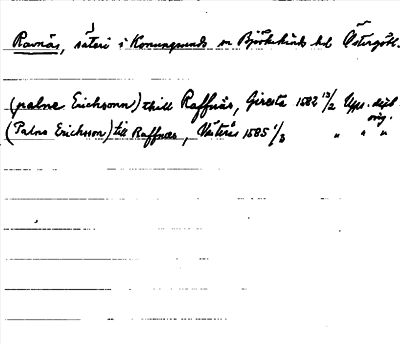 Ravnäs, säteri i Konungsunds sn Björkekinds hd Östergötl.
(palne Erichsonn) thill Raffnäs, Giresta 1582 13/2 Upps. dipl. orig.
(Palne Erichsson) till Raffnäs, Västerås 1585 1/3 " " "